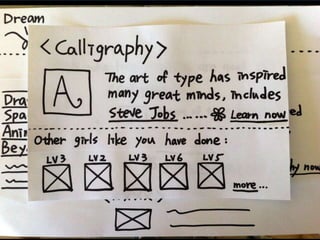 Dream
<Calligraphy>
A
The art of type has inspired
many great minds, includes
Steve Jobs ...... Learn now
Other girls like you have done:
LV3 LV2 LV3 LV6 LV5
more...